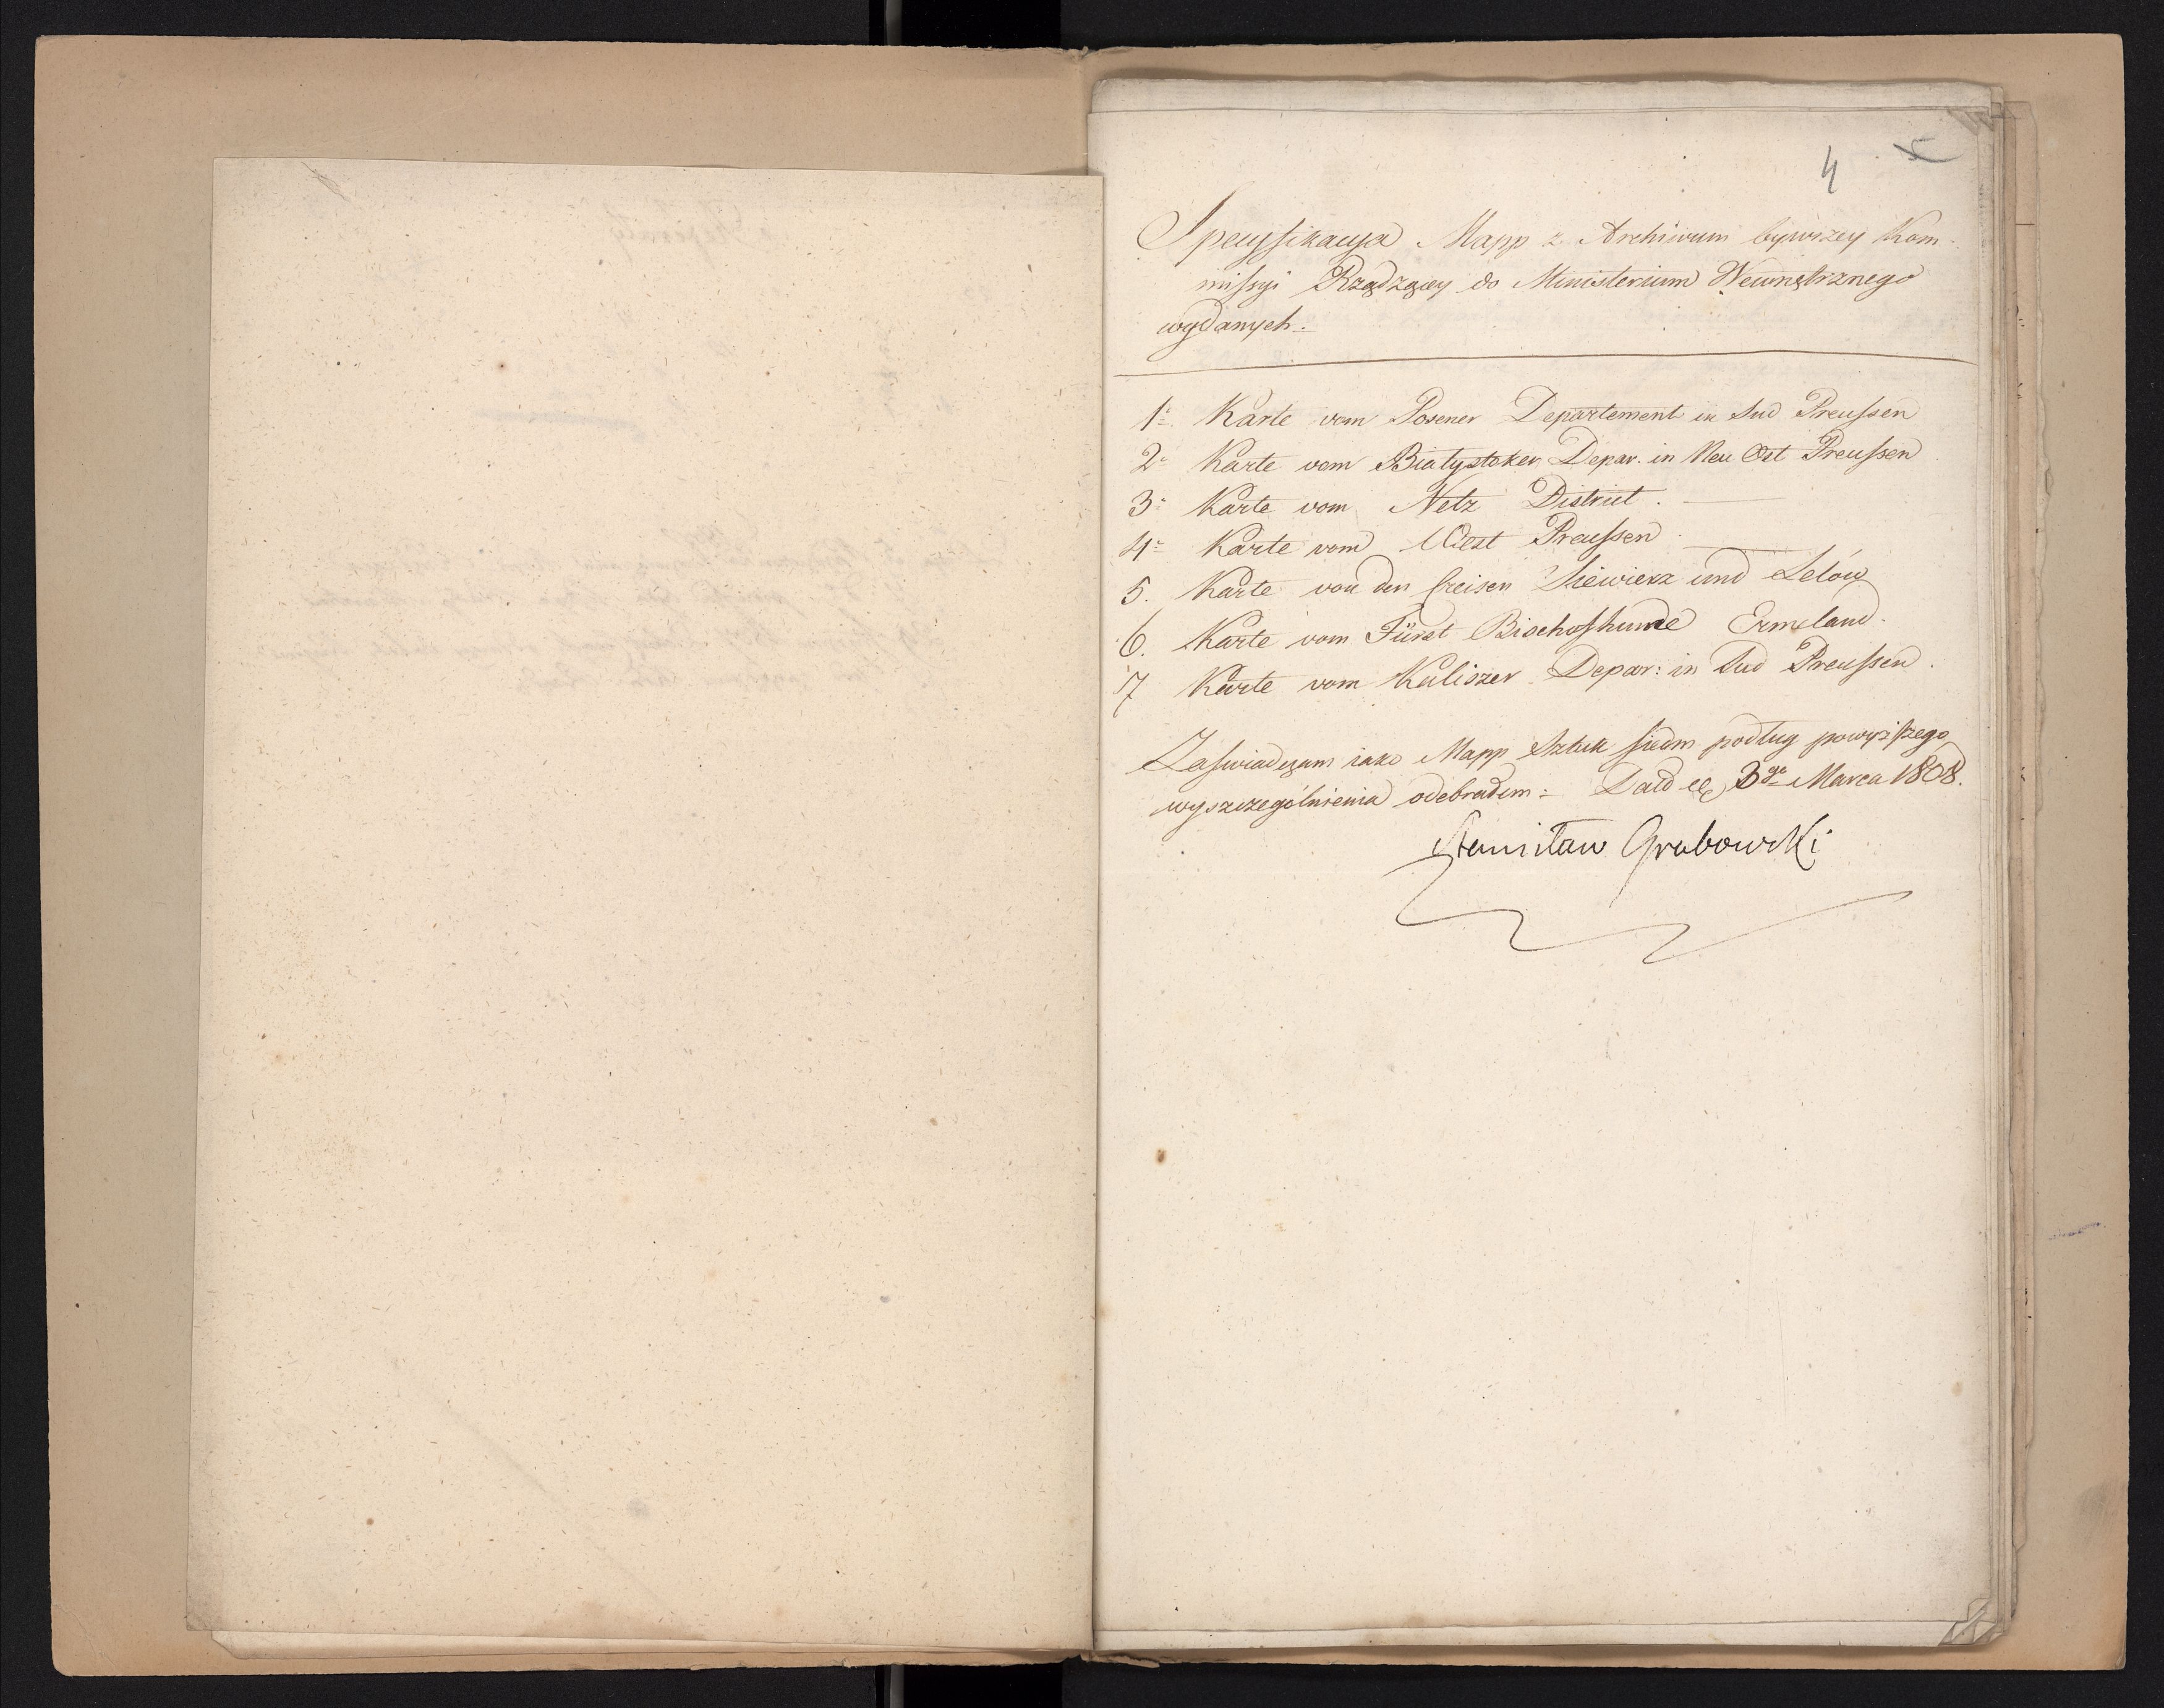 4 5
Specyfikacya Mapp z Archivum bywszey Kom-
missyi Rządzącey do Ministerium Wewnętrznego
wydanych.
1. Karte vom Posener Departement in Sud Preussen
2. Karte vom Białystoker Depar. in Neu Ost Preussen
3. Karte vom Netz District.
4. Karte vom West Preussen
5. Karte von den Creisen Siewierz und Lelow
6. Karte vom Fürst Bischofthume Ermeland.
7 Karte vom Kaliszer Depar: in Sud Preussen.
Zaswiadczam iako Mapp Sztuk siedm podług powyższego
wyszczególnienia odebrałem = Datd 3go Marca 1808.
Stanisław Grabowski